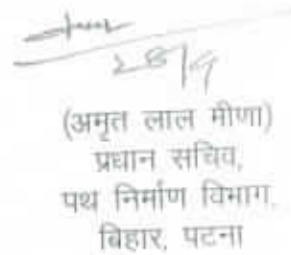 28/9
(अमृत लाल मीणा)
प्रधान सचिव,
पथ निर्माण विभाग,
बिहार, पटना